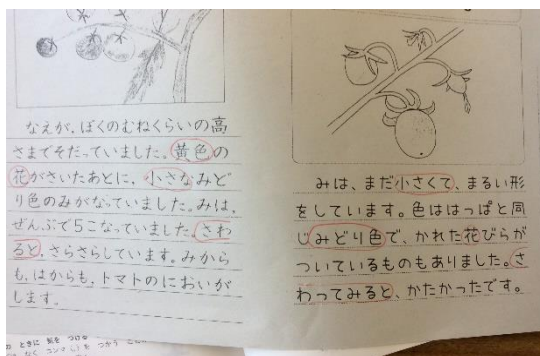 なえが、ぼくのむねくらいの高
さまでそだっていました。黄色の
花がさいたあとに、小さなみど
り色のみがなっていました。みは、
ぜんぶで5こなっていました。さわ
ると、さらさらしています。みから
も、はからも、トマトのにおいが
します。
みは、まだ小さくて、まるい形
をしています。色ははっぱと同
じみどり色で、かれた花びらが
ついているものもありました。さ
わってみると、かたかったです。
ときに
つかう